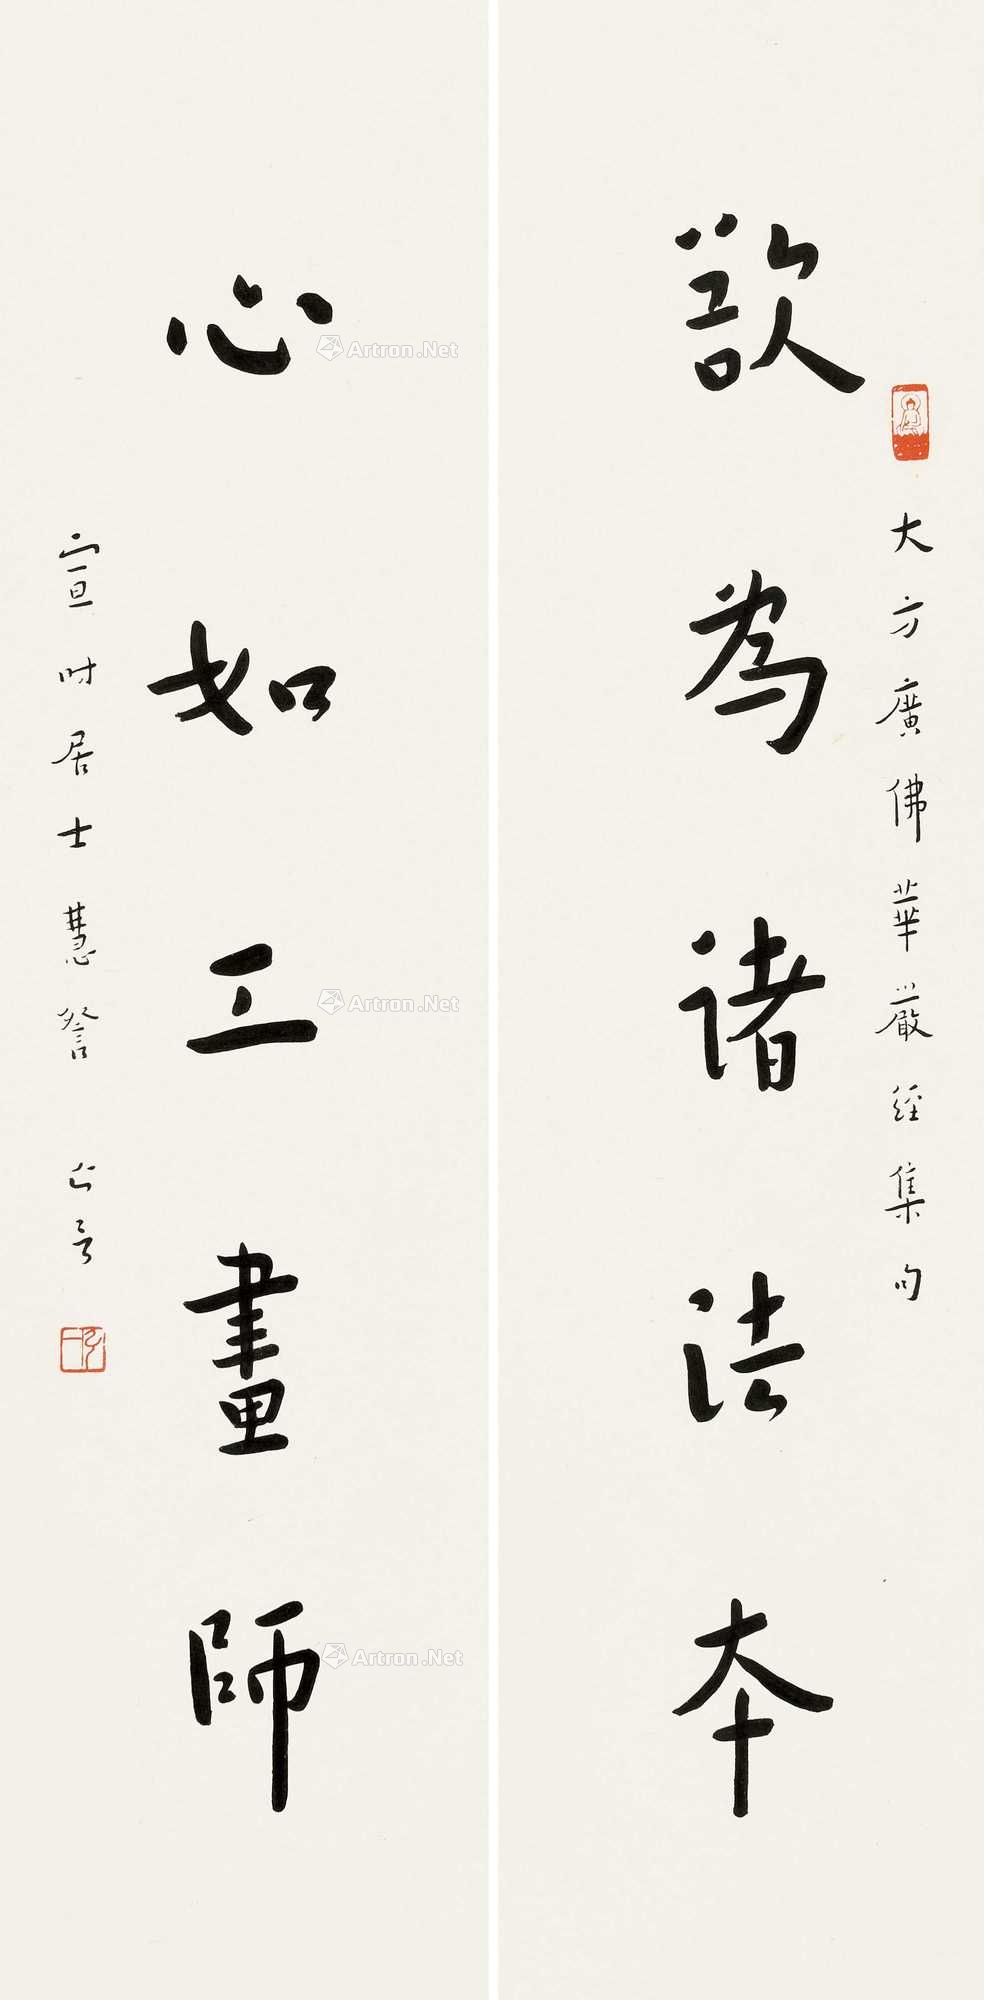 大方廣佛華嚴經集句
欲為諸法本
心如工畫師
宣时居士慧詧 亡言
弘一
Artron.Net
Artron.Net
Artron.Net